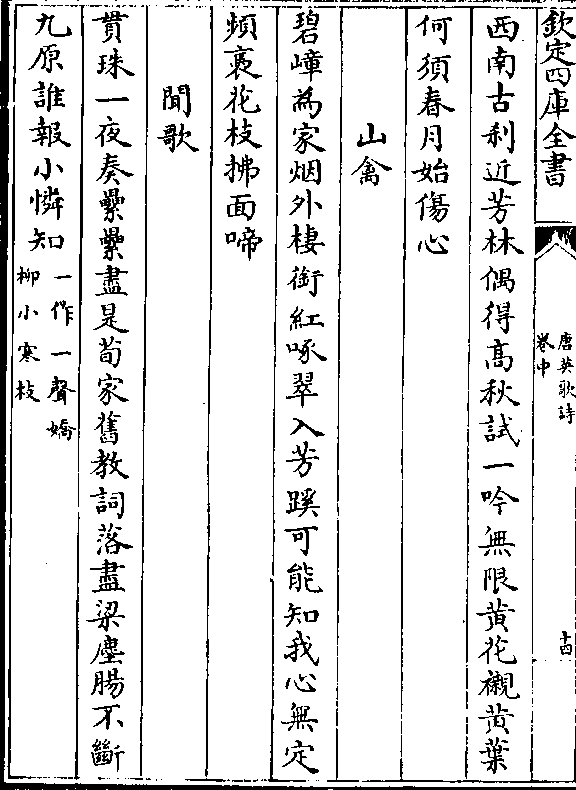 欽定四庫全書
唐英歌詩
卷中
十四
西南古刹近芳林偶得髙秋試一吟無限黄花襯黄葉
何須春月始傷心
山禽
碧嶂為家烟外棲銜紅啄翠入芳蹊可能知我心無定
頻裊花枝拂面啼
聞歌
貫珠一夜奏纍纍盡是荀家舊教詞落盡梁塵腸不斷
九原誰報小憐知一作一聲嬌
柳小寒枝